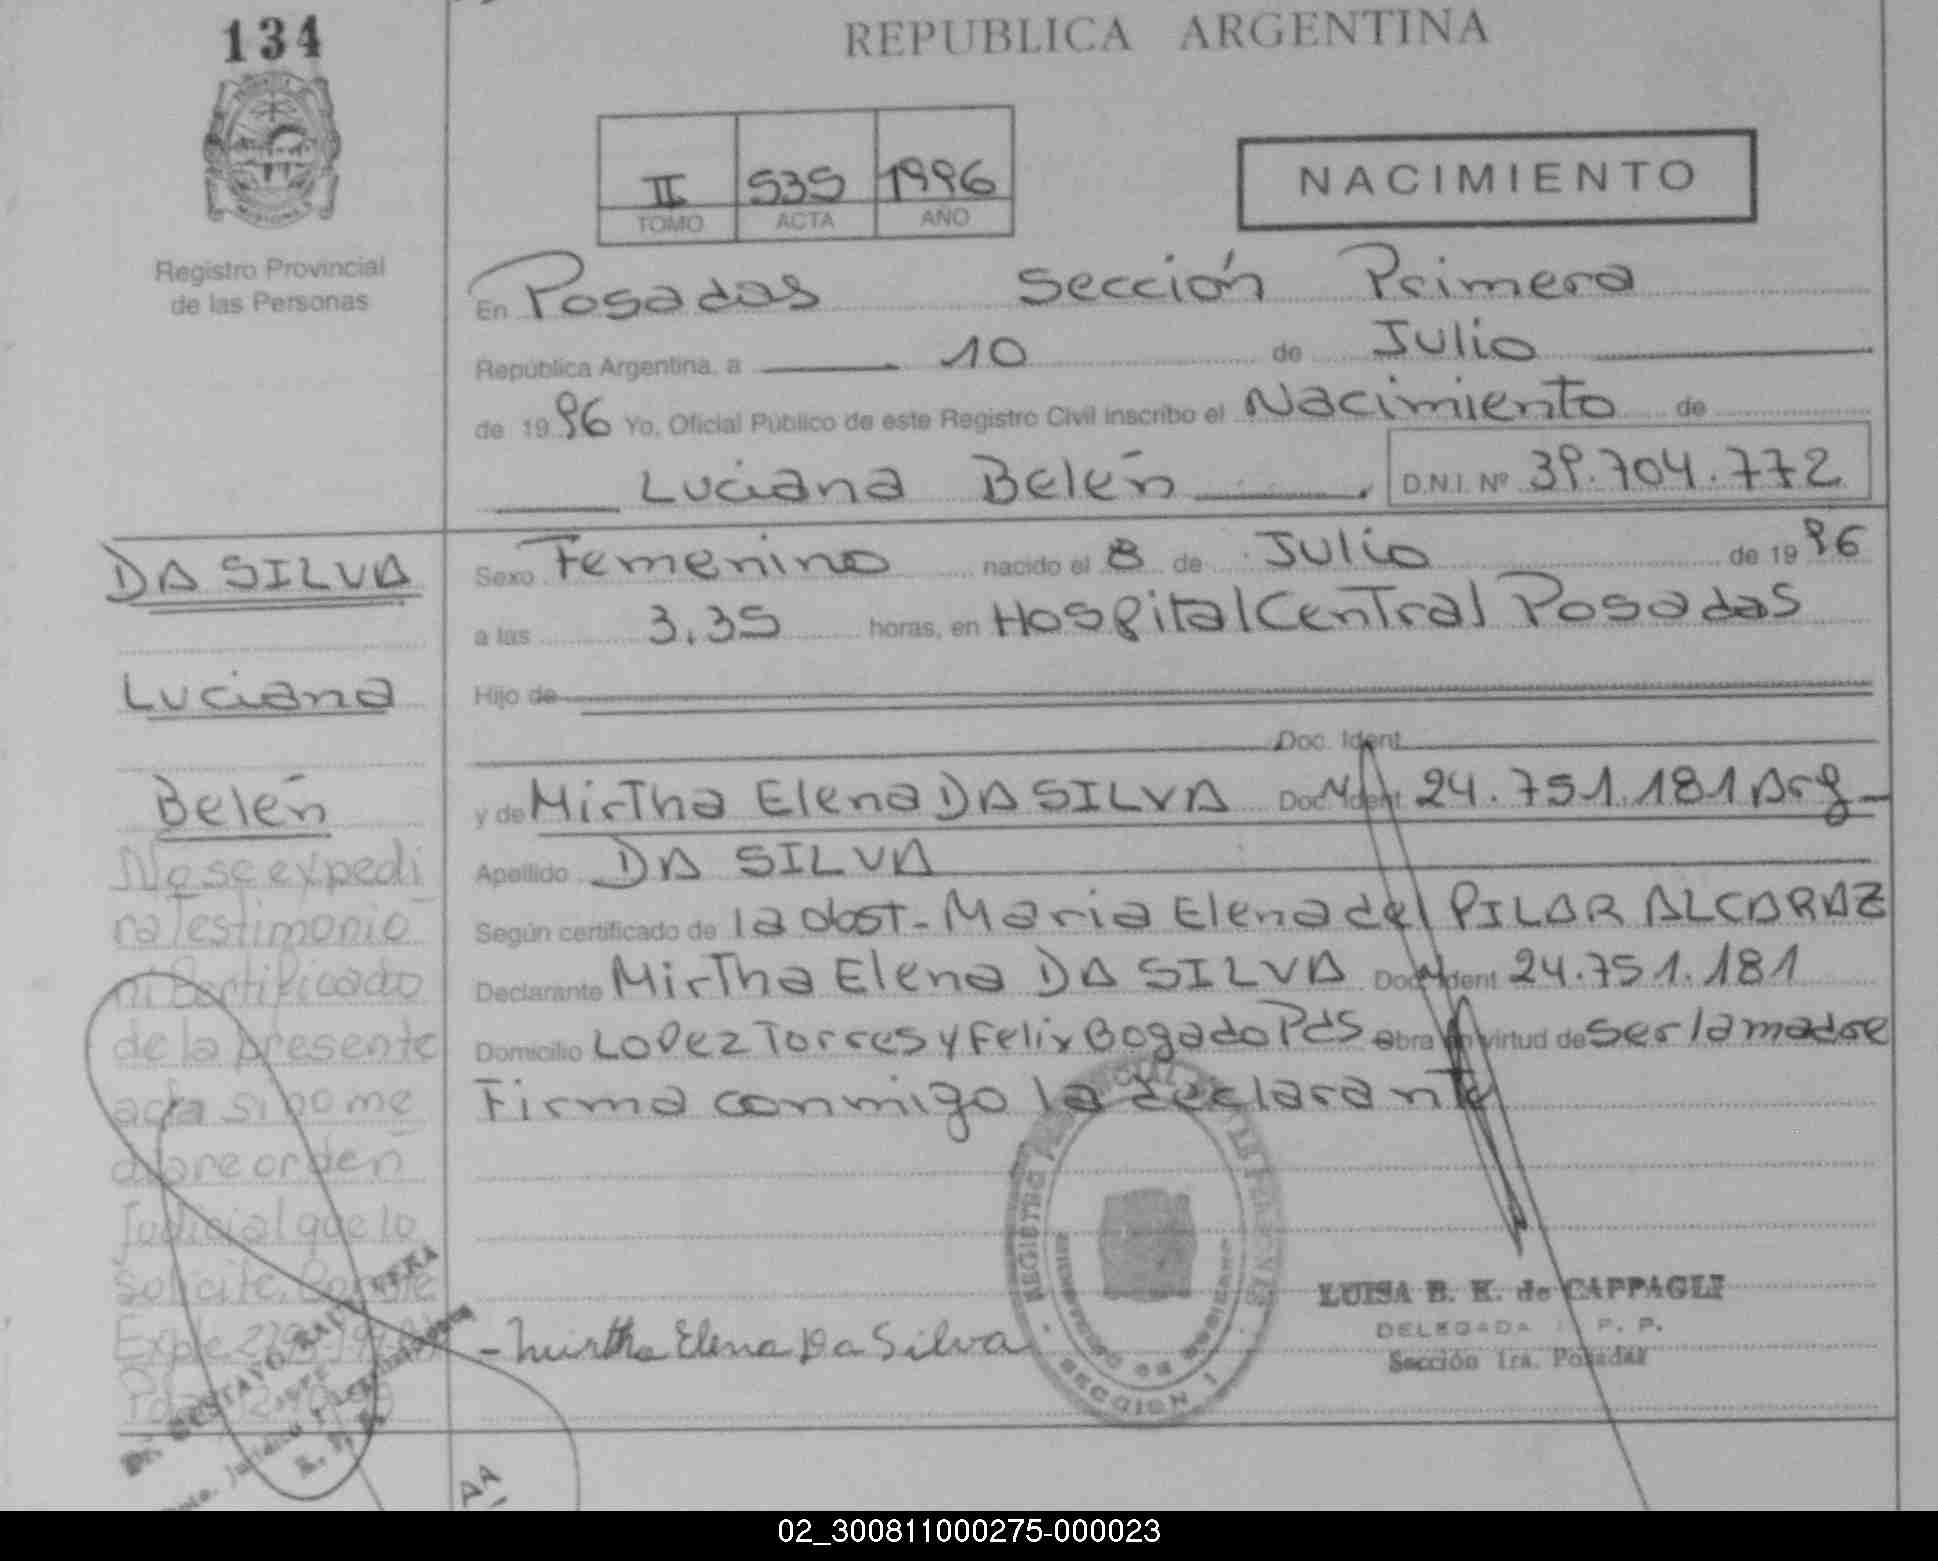 134
REPUBLICA ARGENTINA
II 535 1996
TOMO ACTA AÑO
NACIMIENTO
Registro Provincial
de las Personas
En Posadas Sección Primera
República Argentina, a 10 de Julio
de 1996 Yo, Oficial Público de este Registro Civil inscribo el Nacimiento de
Luciana Belén D.N.I. Nº 39.704.772
DA SILVA
Luciana
Belén
Sexo Femenino nacido el 8 de Julio de 1996
a las 3.35 horas, en Hospital Central Posadas
Hijo de
Doc. Ident.
y de Mirtha Elena DA SILVA Doc. Ident 24.751.181 Arg
Apellido DA SILVA
Según certificado de la obst- Maria Elena del PILAR ALCARAZ
Declarante Mirtha Elena DA SILVA Doc. Ident 24.751.181
Domicilio Lopez Torres y Felix Bogado Pds Obra en virtud de ser la madre
Firma conmigo la declarante
No se expedi
ra Testimonio
ni Certificado
de la presente
acta si no me
diare orden
Judicial que lo
solicite.
Expte
Mirtha Elena Da Silva
SECCION 1
LUISA B. K. de CAPPAGLI
DELEGADA P. P.
Sección 1ra. Posadas
Dr. GUSTAVO
JEFE
02_300811000275-000023